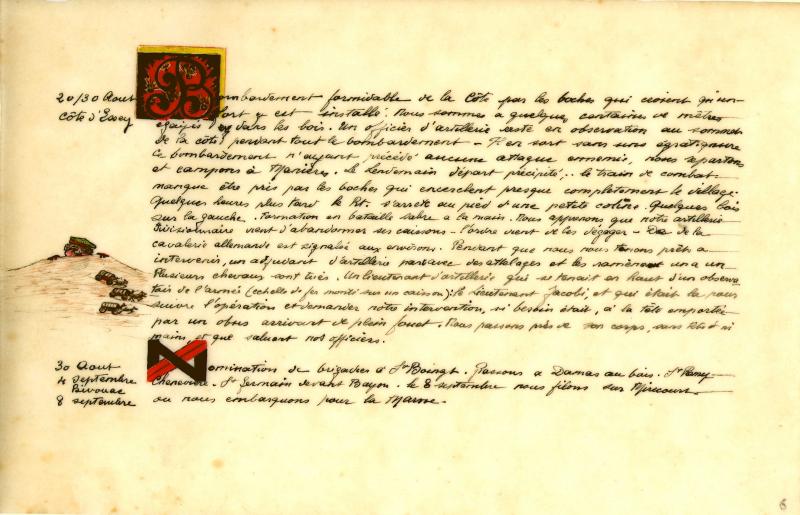 20/30 Aout Bombardement formidable de la Côte par les boches qui croient qu'un
côte d'Essey fort y est installé. Nous sommes a quelques centaines de mètres
égayés dans les bois. Un officier d'artillerie reste en observation au sommet
de la côte pendant tout le bombardement - Il en sort sans une égratignure
Le bombardement n'ayant précédé aucune attaque ennemie, nous repartons
et campons à . Le lendemain départ précipité, .. le train de combat
manque être pris par les boches qui encerclent presque completement le village.
Quelques heures plus tard le Rt. s'arrête au pied d'une petite colline. Quelques bois
sur la gauche. Formation en bataille sabre a la main. Nous apprenons que notre artillerie
divisionnaire vient d'abandonner ses caissons - l'ordre vient de les dégager - De la
cavalerie allemande est signalée aux environs. Pendant que nous nous tenons prêts a
intervenir, un adjudant d'artillerie part avec des attelages et les ramènent un a un
Plusieurs chevaux sont tués. Un lieutenant d'artillerie qui se tenait en haut d'un observa
toire de l'armée (echelle de fer monté sur un caisson): le lieutenant Jacobi, et qui était la pour
suivre l'opération et demander notre intervention, si besoin était, a la tête emportée
par un obus arrivant de plein fouet. Nous passons près de son corps, sans tête ni
main, et que saluent nos officiers.
30 Aout Nomination de brigadier à St Boingt. Passons a Damas au bois. St Remy
4 septembre St Germain devant Bayon. le 8 septembre nous filons sur Mirecourt
Bivouac
8 septembre ou nous embarquons pour la Marne.
6